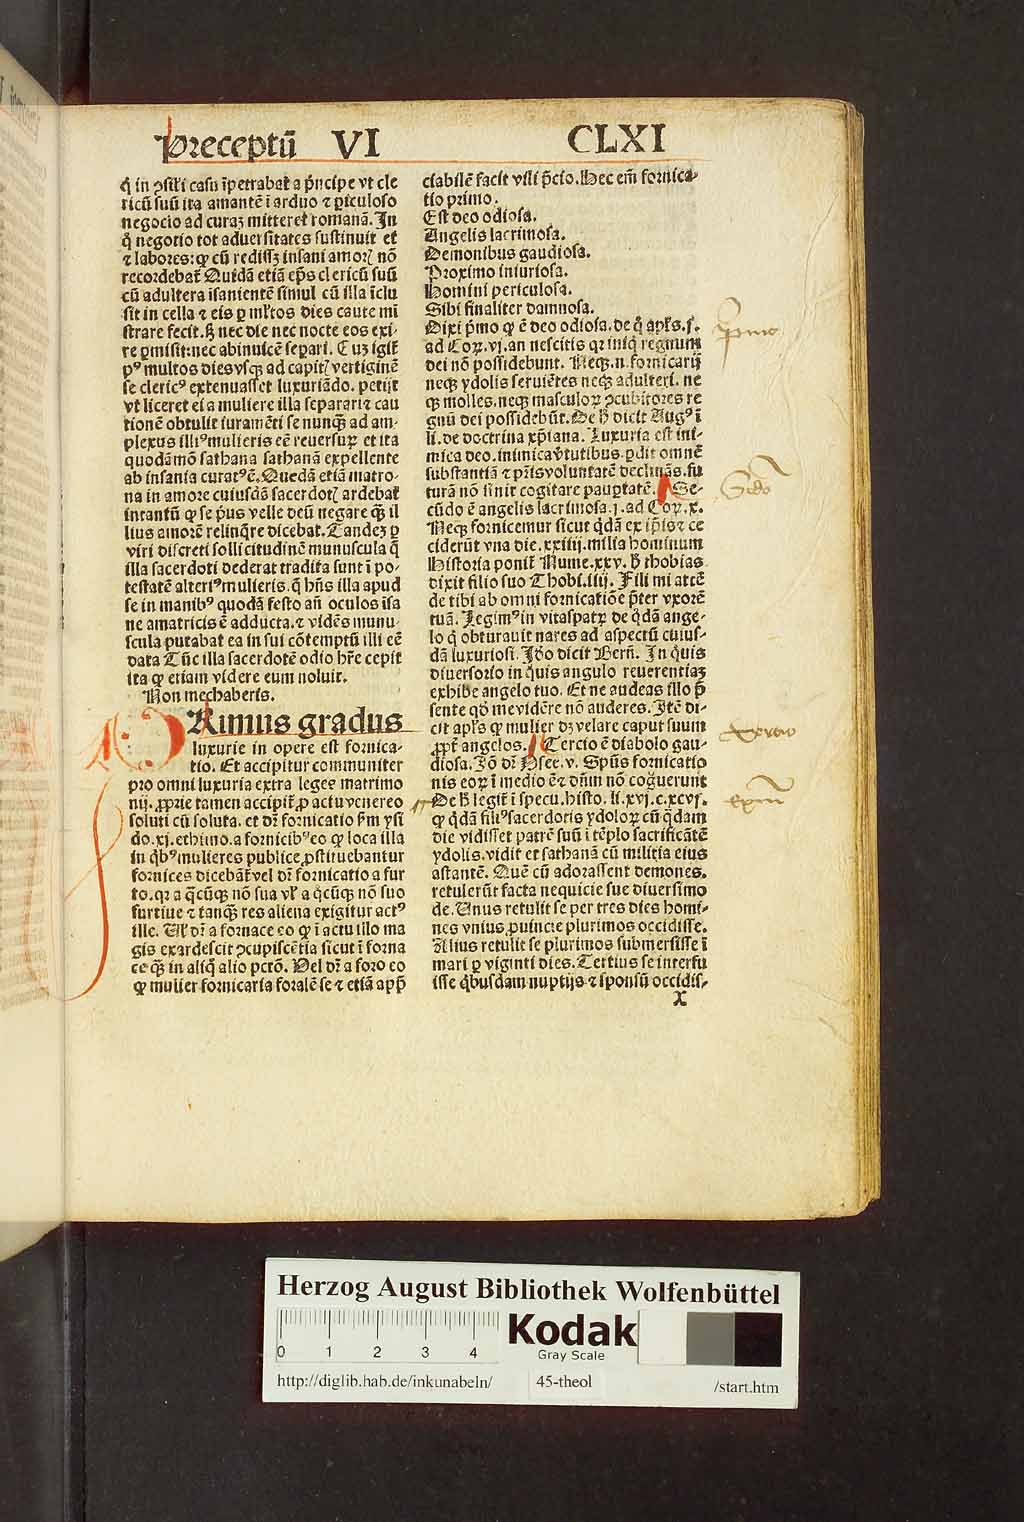 Preceptū VI
CLXI
q̄ in ꝯsili casu īpetrabat̄ a pͥncipe vt cle
ricū suū ita amantē ī arduo ⁊ ꝑiculoso
negocio ad curaꝫ mitteret romanā. In
q̄ negotio tot aduersitates sustinuit et
⁊ labores: ꝙ cū redissꝫ insani amorꝭ nō
recordebat̄ Quidā etiā ep̄s clericū suū
cū adultera īsanientē simul cū illa īclu
sit in cella ⁊ eis ꝑ ml̄tos dies caute mī
strare fecit. ꝫ nec die nec nocte eos exi-
re ꝑmisit: nec abinuicē separi. Cuꝫ igit̄
pꝰ multos dies vsqꝫ ad capitꝭ vertiginē
se clericꝰ extenuasset luxuriādo. petijt
vt liceret ei a muliere illa separari ⁊ cau
tionē obtulit iuramēti se nunqꝫ ad am-
plexus illiꝰ mulieris eē reuersuꝝ et ita
quodāmō sathana sathanā expellente
ab insania curatꝰ ē. Quedā etiā matro-
na in amore cuiusdā sacerdotꝭ ardebat
intantū ꝙ se pͥus velle deū negare qꝫ il
lius amorē relinq̄re dicebat. Tandeꝫ ꝑ
viri discreti sollicitudinē munuscula q̄
illa sacerdoti dederat tradita sunt ī po-
testatē alteriꝰ mulieris. q̄ hn̄s illa apud
se in manibꝰ quodā festo an̄ oculos īsa
ne amatricis ē adducta. ⁊ vidēs munu-
scula putabat ea in sui cōtemptū illi eē
data Tūc illa sacerdotē odio hr̄e cepit
ita ꝙ etiam videre eum noluit.
Non mechaberis.
Rimus gradus
luxurie in opere est fornica-
tio. Et accipitur communiter
pro omni luxuria extra legeꝫ matrimo
nij. ꝓprie tamen accipit̄ ꝓ actu venereo
soluti cū soluta. et dr̄ fornicatio ẜm ysi
do. xj. ethimo. a fornicibꝰ eo ꝙ loca illa
in qͥbꝰ mulieres publice ꝓstituebantur
fornices dicebāt̄ vel dr̄ fornicatio a fur
to. qꝛ a q̄cūqꝫ nō sua vl̄ a q̊cūqꝫ nō suo
furtiue ⁊ tanqꝫ res aliena exigitur actꝰ
ille. Vl̄ dr̄ a fornace eo ꝙ ī actu illo ma
gis exardescit ꝯcupiscētia sicut ī forna
ce qꝫ in aliq̊ alio pctō. Vel dr̄ a foro eo
ꝙ mulier fornicaria foralē se ⁊ etiā app̄
ciabilē facit vili p̄cio. Hec em̄ fornica-
tio primo.
Est deo odiosa.
Angelis lacrimosa.
Demonibus gaudiosa.
Proximo iniuriosa.
Homini periculosa.
Sibi finaliter damnosa.
Dixi pͥmo ꝙ ē deo odiosa. de q̊ apl̄s. j.
ad Coꝝ. vj. an nescitis qꝛ iniq̊ regnum
dei nō possidebunt. Neqꝫ. n. fornicarij
neqꝫ ydolis seruiētes neqꝫ adulteri. ne
qꝫ molles. neqꝫ masculoꝝ ꝯcubitores re
gnū dei possidebūt. De h̄ dicit Augꝰ ī
li. de doctrina xp̄iana. Luxuria est ini-
mica deo. inimica v̄tutibus. ꝑdit omnē
substantiā ⁊ pn̄s voluntatē declināns. fu
turā nō sinit cogitare pauꝑtatē. Se-
cūdo ē angelis lacrimosa. j. ad Coꝝ. x.
Neqꝫ fornicemur sicut qͥdā ex ip̄is ⁊ ce
ciderūt vna die. xxiiij. milia hominum
Historia ponit̄ Nume. xxv. h̄ thobias
dixit filio suo Thobi. iiij. Fili mi attē
de tibi ab omni fornicatiōe p̄ter vxorē
tuā. Legimꝰ in vitaspatꝝ de qͥdā ange-
lo q̄ obturauit nares ad aspectū cuius-
dā luxuriosi. Iō dicit Bern̄. In q̊uis
diuersorio in q̊uis angulo reuerentiaꝫ
exhibe angelo tuo. Et ne audeas illo p̄
sente qd̄ me vidēre nō auderes. Itē di-
cit apl̄s ꝙ mulier dꝫ velare caput suum
ꝓpt̄ angelos. Tercio ē diabolo gau-
diosa. Iō dr̄ Osee. v. Spūs fornicatio
nis eoꝝ ī medio ē ⁊ dn̄m nō cog̊uerunt
De h̄ legit̄ ī specu. histo. li. xvj. c. xcvj.
ꝙ qͥdā filiꝰ sacerdotis ydoloꝝ cū qͥdam
die vidisset patrē suū ī tēplo sacrificātē
ydolis. vidit et sathanā cū militia eius
astantē. Quē cū adorassent demones.
retulerūt facta nequicie sue diuersimo
de. Unus retulit se per tres dies homi-
nes vnius ꝓuincie plurimos occidisse.
Alius retulit se plurimos submersisse ī
mari ꝑ viginti dies. Tertius se interfu
isse qͥbusdam nuptijs ⁊ sponsū occidis-
X
pͥmo
Scdo
tercio
exm̄
Herzog August Bibliothek Wolfenbüttel
0 1 2 3 4
Kodak
Gray Scale
http://diglib.hab.de/inkunabeln/
45-theol
/start.htm